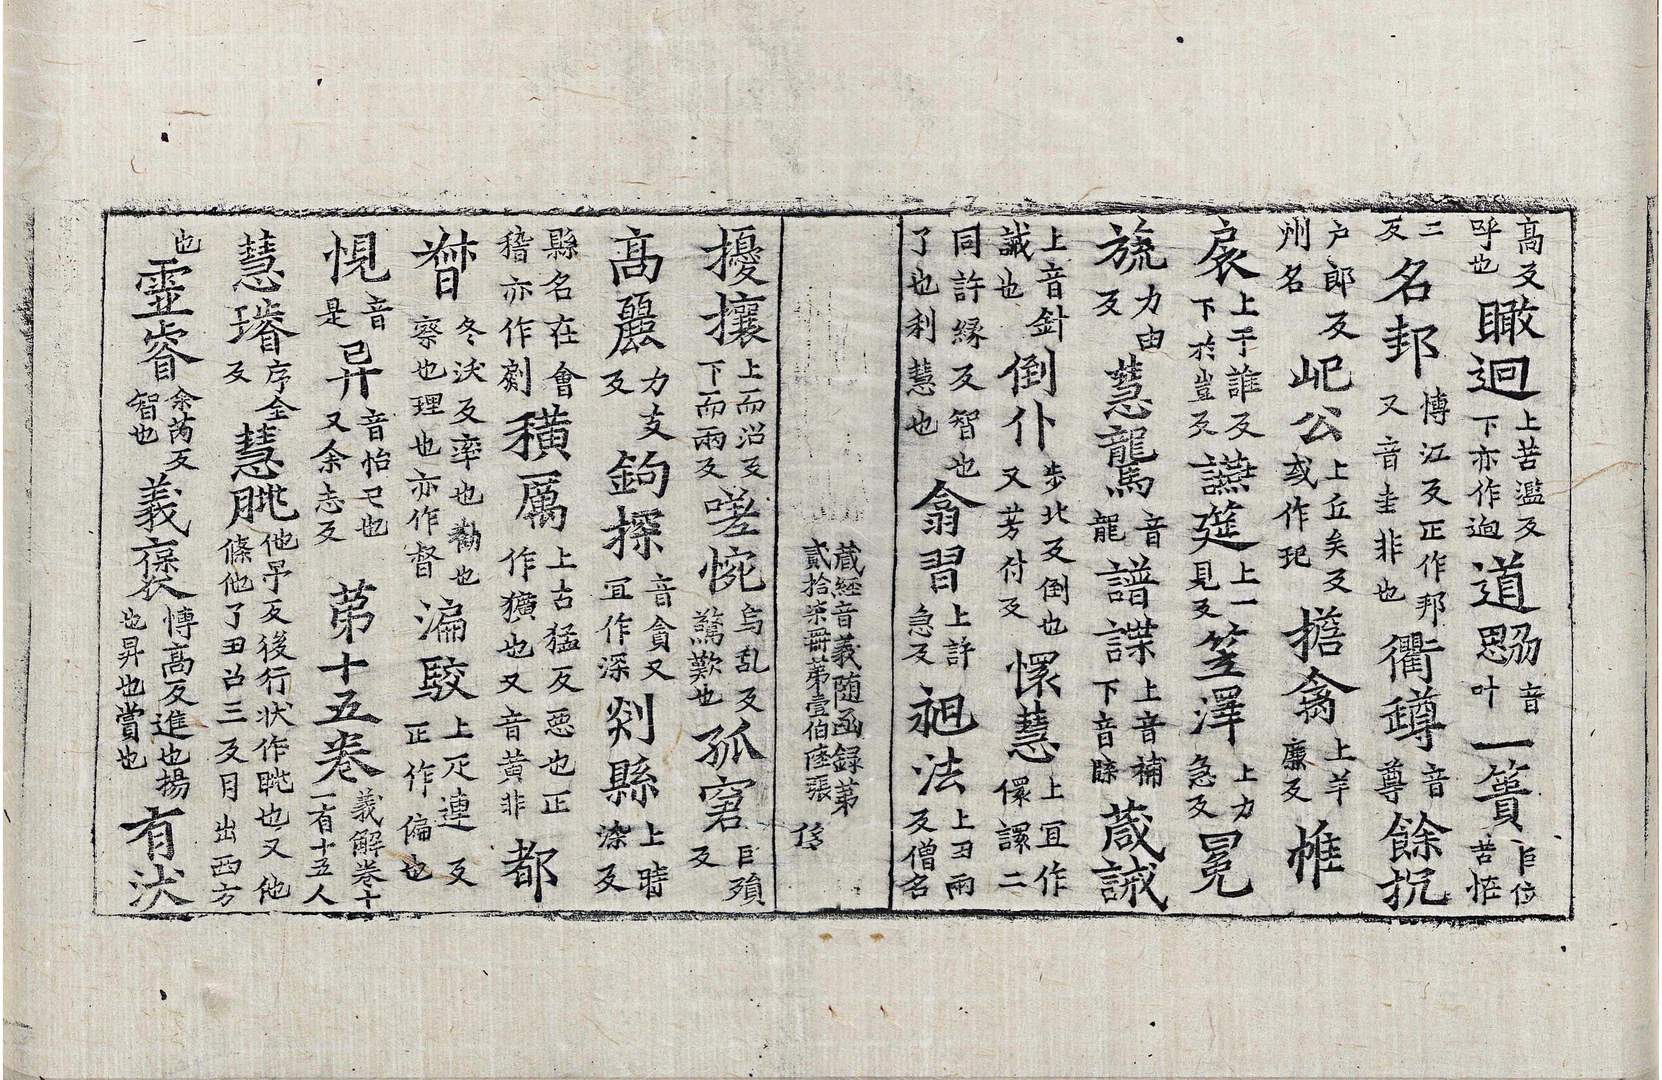 高反呼也瞰迥上苦濫反下亦作逈道勰音叶一簣巨位苦恠
二反名邦博江反正作邦又音圭非也衢罇音尊餘抧
戶郎反州名屺公上丘矣反或作玘擔禽上羊廉反帷
扆上于誰反下於豈反讌筵上一見反笠澤上力急反冕
旒力由反慧龍馬音龍譜諜上音補下音牒葴誡
上音針誡也倒仆步北反倒也又芳付反懷慧上宜作儇譞二
同許緣反智也了也利慧也翕習上許急反𧙗法上丑兩反僧名
藏經音義隨函錄第貳拾柒冊第壹伯陸張
擾攘上而沼反下而兩反嗟惋烏乱反驚歎也孤窘巨殞反
高麗力支反鉤探音貪又冝作深剡縣上時染反
縣名在會稽亦作剡獷厲上古猛反惡也正作獷也又音黃非都
督冬沃反率也勸也察也理也亦作督漏駮上疋連反正作偏也
愰音是異音怡已也又余志反第十五卷義解卷十一有十五人
慧璿序全反慧朓他吊反後行狀作眺也又他條他了丑召三反月出西方
也靈睿余芮反智也義褒博高反進也揚也昇也賞也有洑